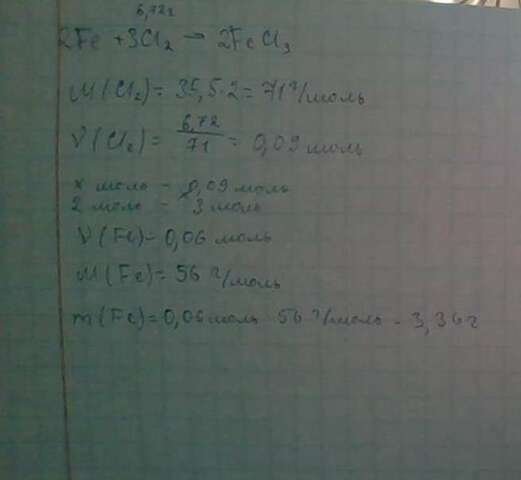 6,72г
2Fe + 3Cl₂ → 2FeCl₃
M(Cl₂) = 35,5·2 = 71 г/моль
ν(Cl₂) = 6,72/71 = 0,09 моль
x моль – 0,09 моль
2 моль – 3 моль
ν(Fe) – 0,06 моль
M(Fe) = 56 г/моль
m(Fe) = 0,06 моль 56 г/моль – 3,36 г